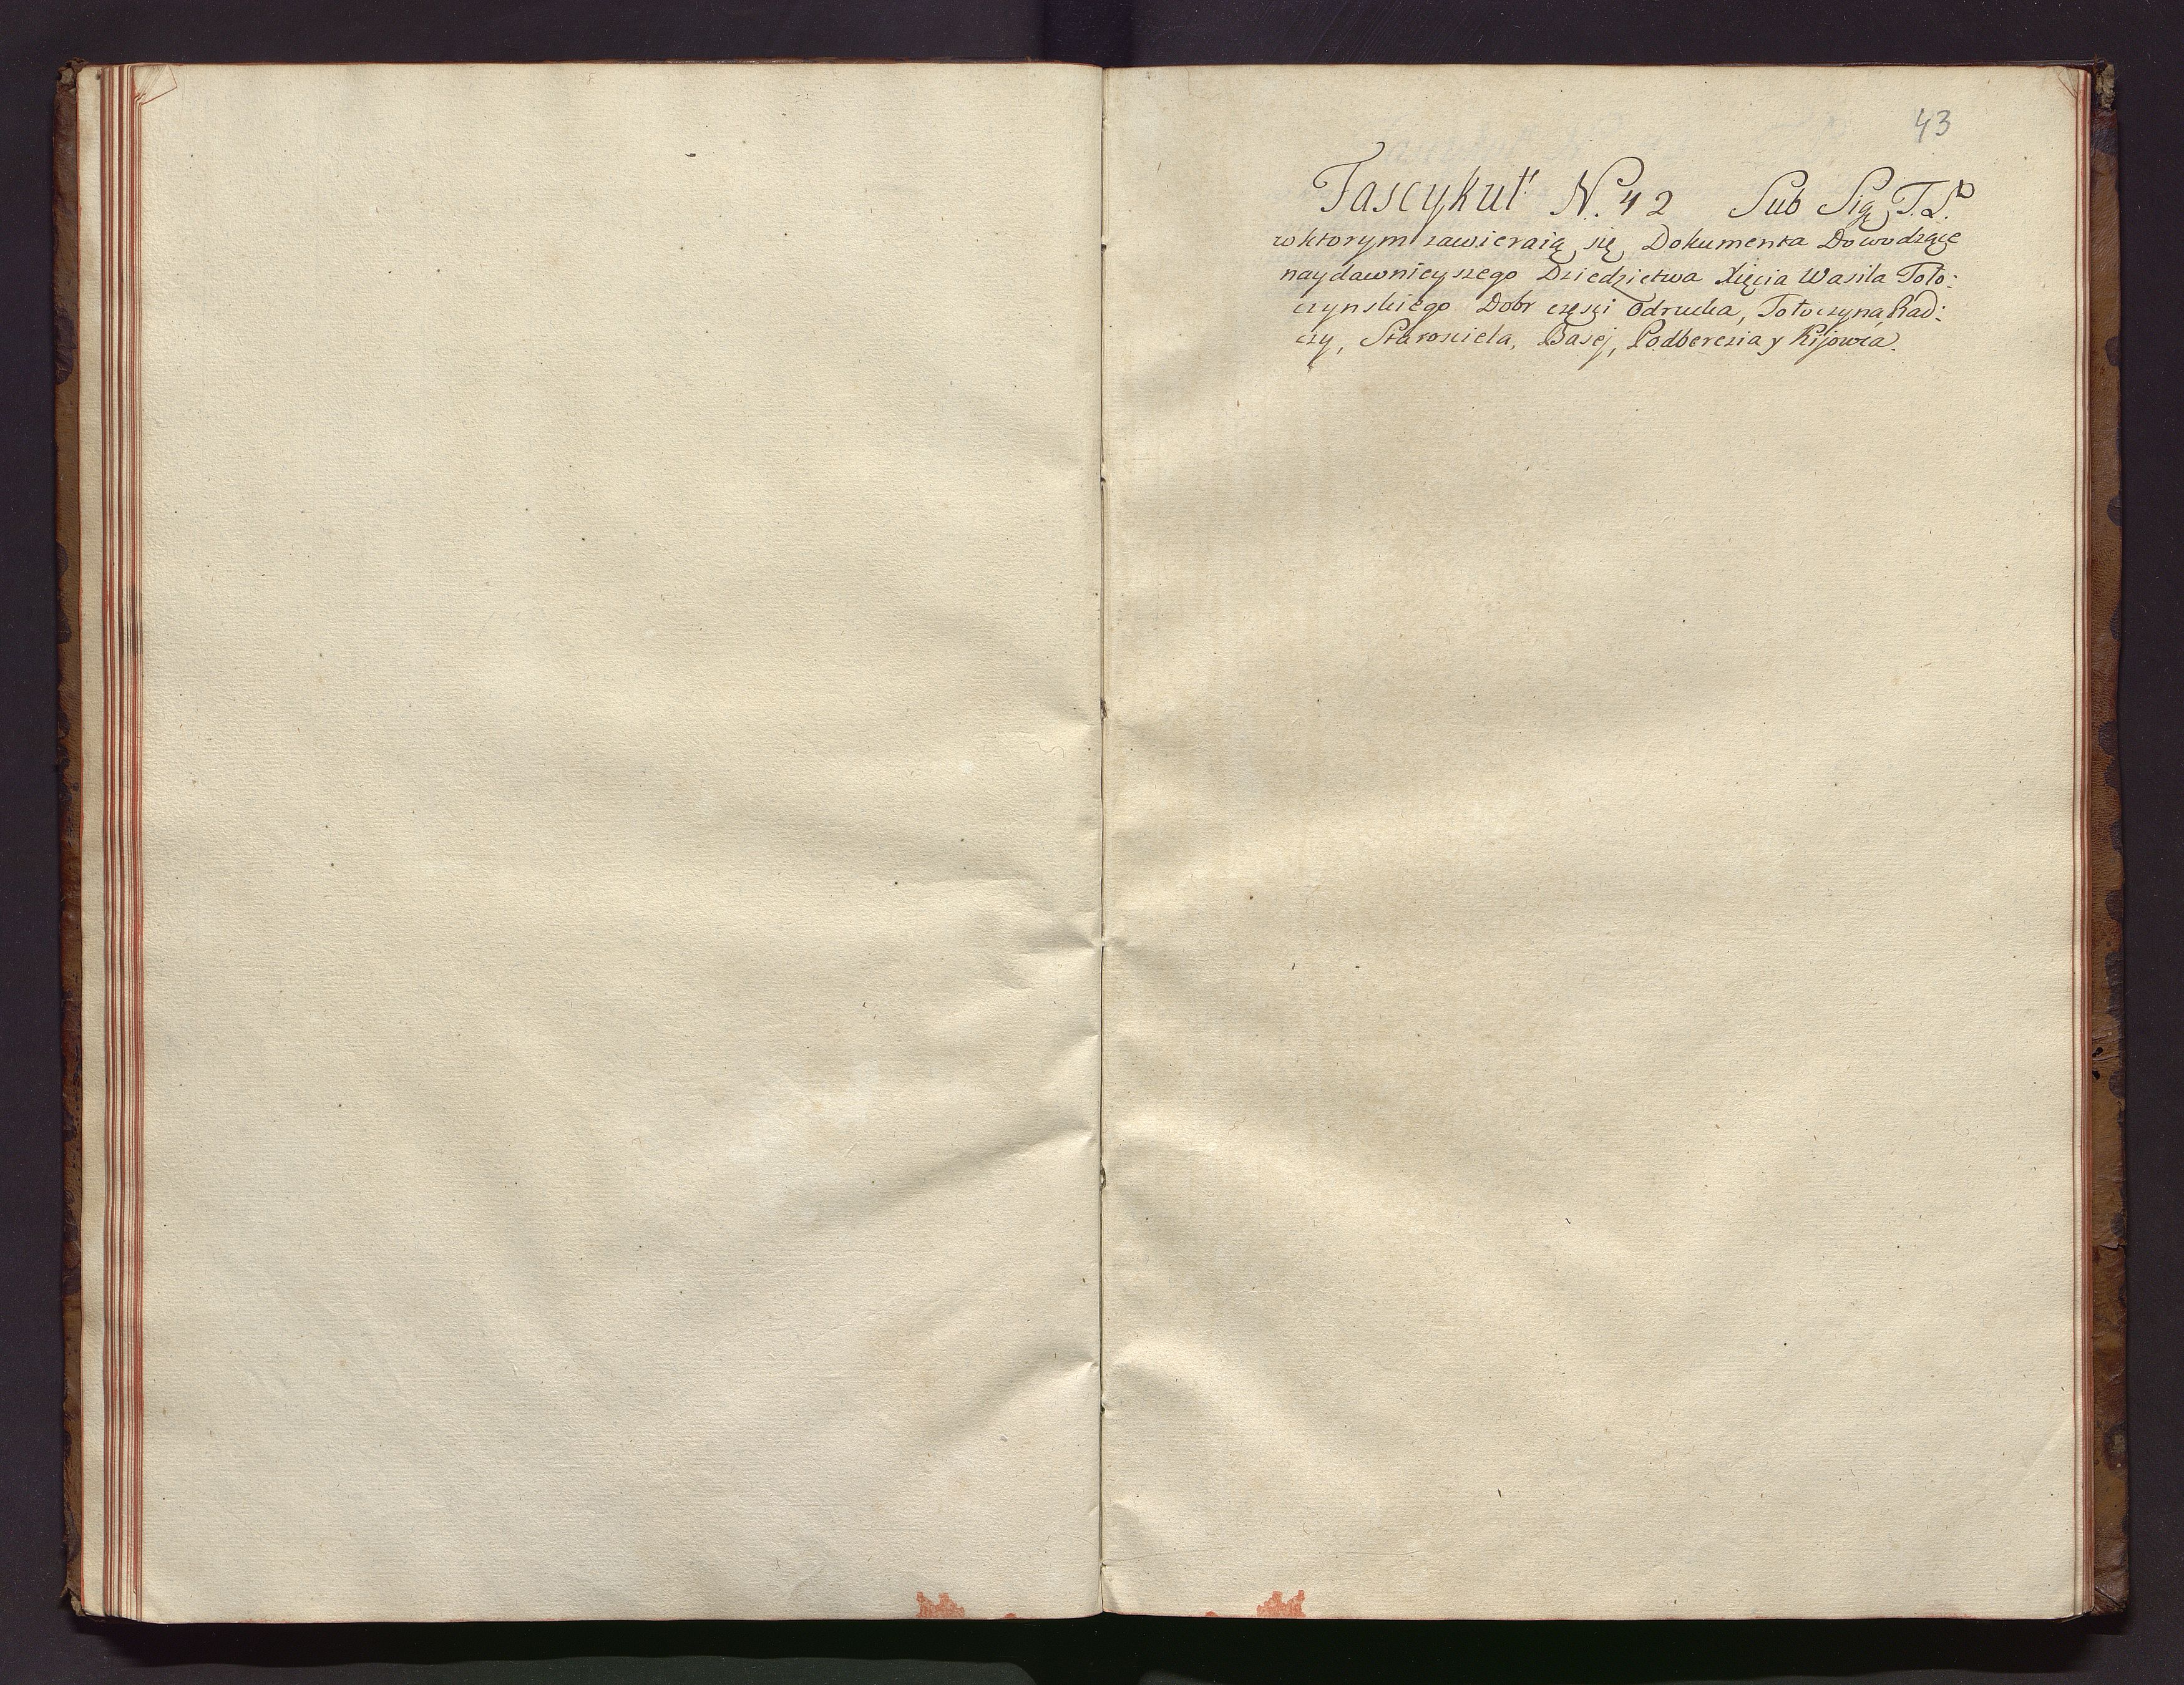 43
Fascykuł N. 42 Sub Sig T. S.
w ktorym zawieraią się Dokumenta Dowodzące
naydawnieyszego Dziedzictwa Xięcia Wasila Toło:
czynskiego Dobr częsci Odrucka, Tołoczyna, Rad:
czy, Starosiela, Basej, Podberezia y Kijowca.